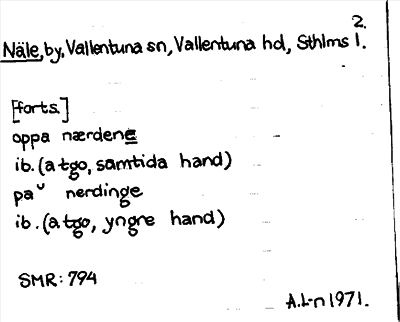 2.
Näle, by, Vallentuna sn, Vallentuna hd, Sthlms l.
[forts.]
oppa nærdene
ib. (a tgo, samtida hand)
pa nerdinge
ib. (a tgo, yngre hand)
SMR: 794
A.L-n 1971.